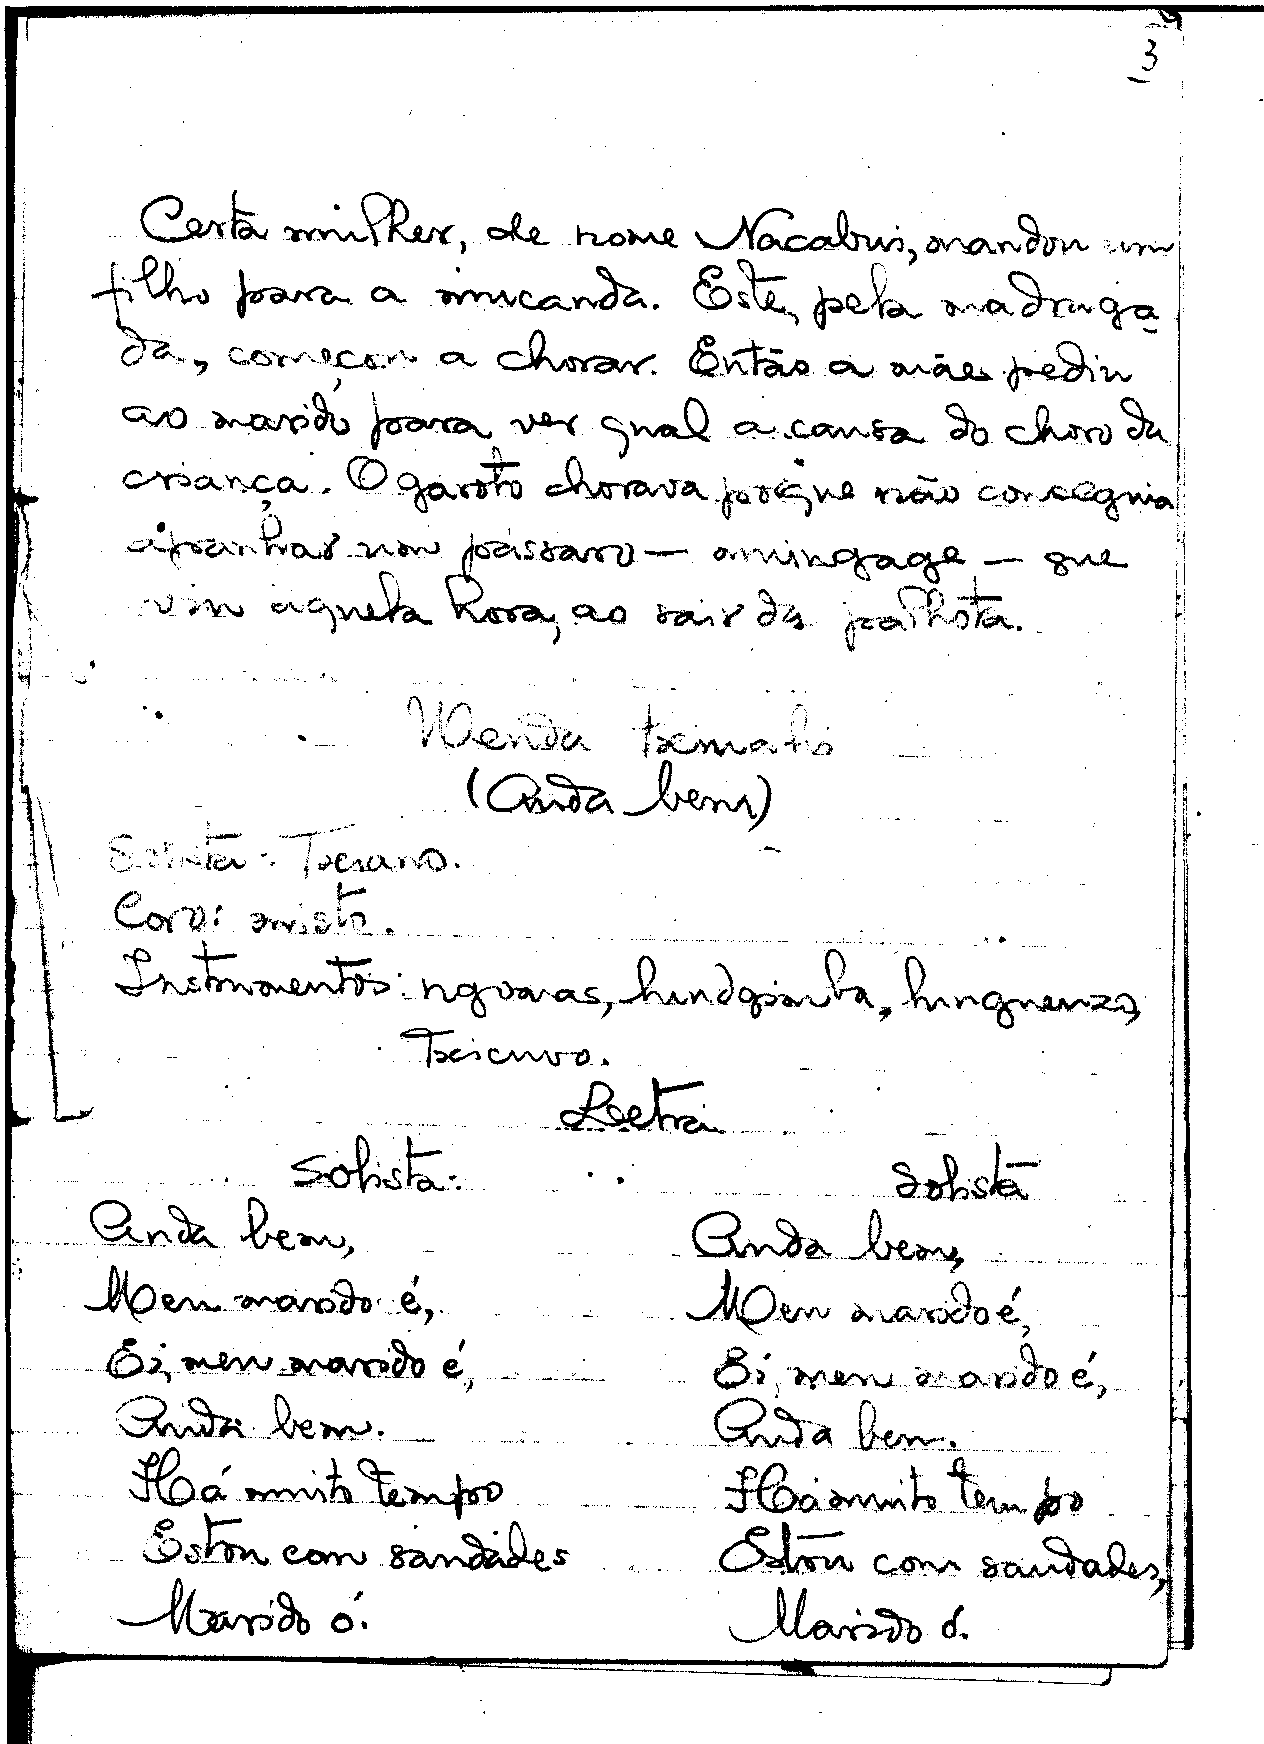 3
Certa mulher, de nome Nacabuis, mandou um
filho para a mucanda. Este, pela madruga
da, começou a chorar. Então a mãe pediu
ao marido para ver qual a causa do choro da
criança. O garoto chorava porque não conseguia
apanhar um pássaro — mingage — que
viu àquela hora, ao sair da palhota.
Wenda
(Anda bem)
Solista: Txesano.
Coro: misto.
Instrumentos: ngomas,
Letra
Solista:
Anda bem,
Meu marido é,
Ei, meu marido é,
Anda bem.
Há muito tempo
Estou com saudades
Marido ó.
Solista
Anda bem,
Meu marido é,
Ei, meu marido é,
Anda bem.
Há muito tempo
Estou com saudades,
Marido ó.